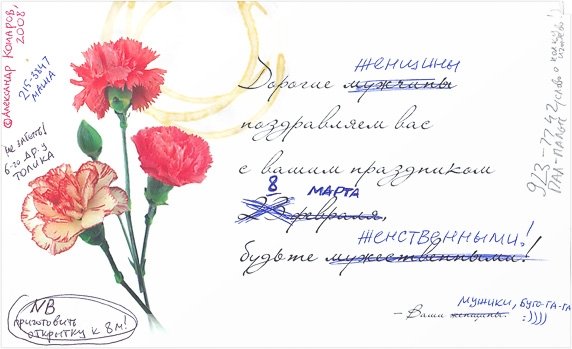 ©Александр Комаров,
2008
215-3847
МАША
НЕ ЗАБЫТЬ!
6-го ДР. У
ТОЛИКА
ЖЕНЩИНЫ
Дорогие мужчины
поздравляем вас
с вашим праздником
8 МАРТА
23 февраля,
ЖЕНСТВЕННЫМИ!
будьте мужественными!
МУЖИКИ, БУГО-ГА-ГА
– Ваши женщины. :))))
NB
ПРИГОТОВИТЬ
ОТКРЫТКУ К 8М!
923-7742